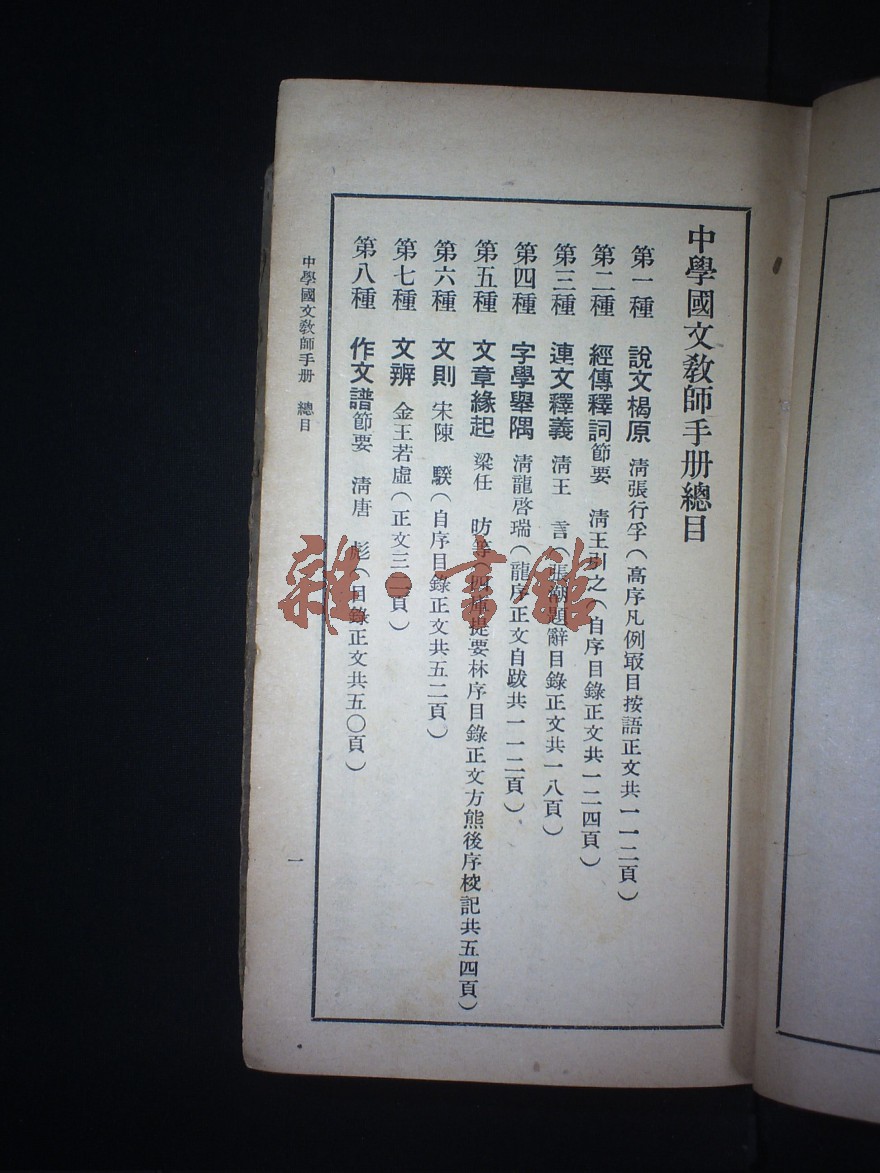 中學國文敎師手册總目
第一種 說文楬原 淸張行孚（高序凡例㝡目按語正文共一一二頁）
第二種 經傳釋詞節要 淸王引之（自序目錄正文共一二四頁）
第三種 連文釋義 淸王 言（張潮題辭目錄正文共一八頁）
第四種 字學舉隅 淸龍啓瑞（龍序正文自跋共一一二頁）
第五種 文章緣起 梁任 昉等（四庫提要林序目錄正文方熊後序校記共五四頁）
第六種 文則 宋陳 騤（自序目錄正文共五二頁）
第七種 文辨 金王若虛（正文三 頁）
第八種 作文譜節要 淸唐 彪（目錄正文共五〇頁）
中學國文敎師手册 總目
一
雜·書館